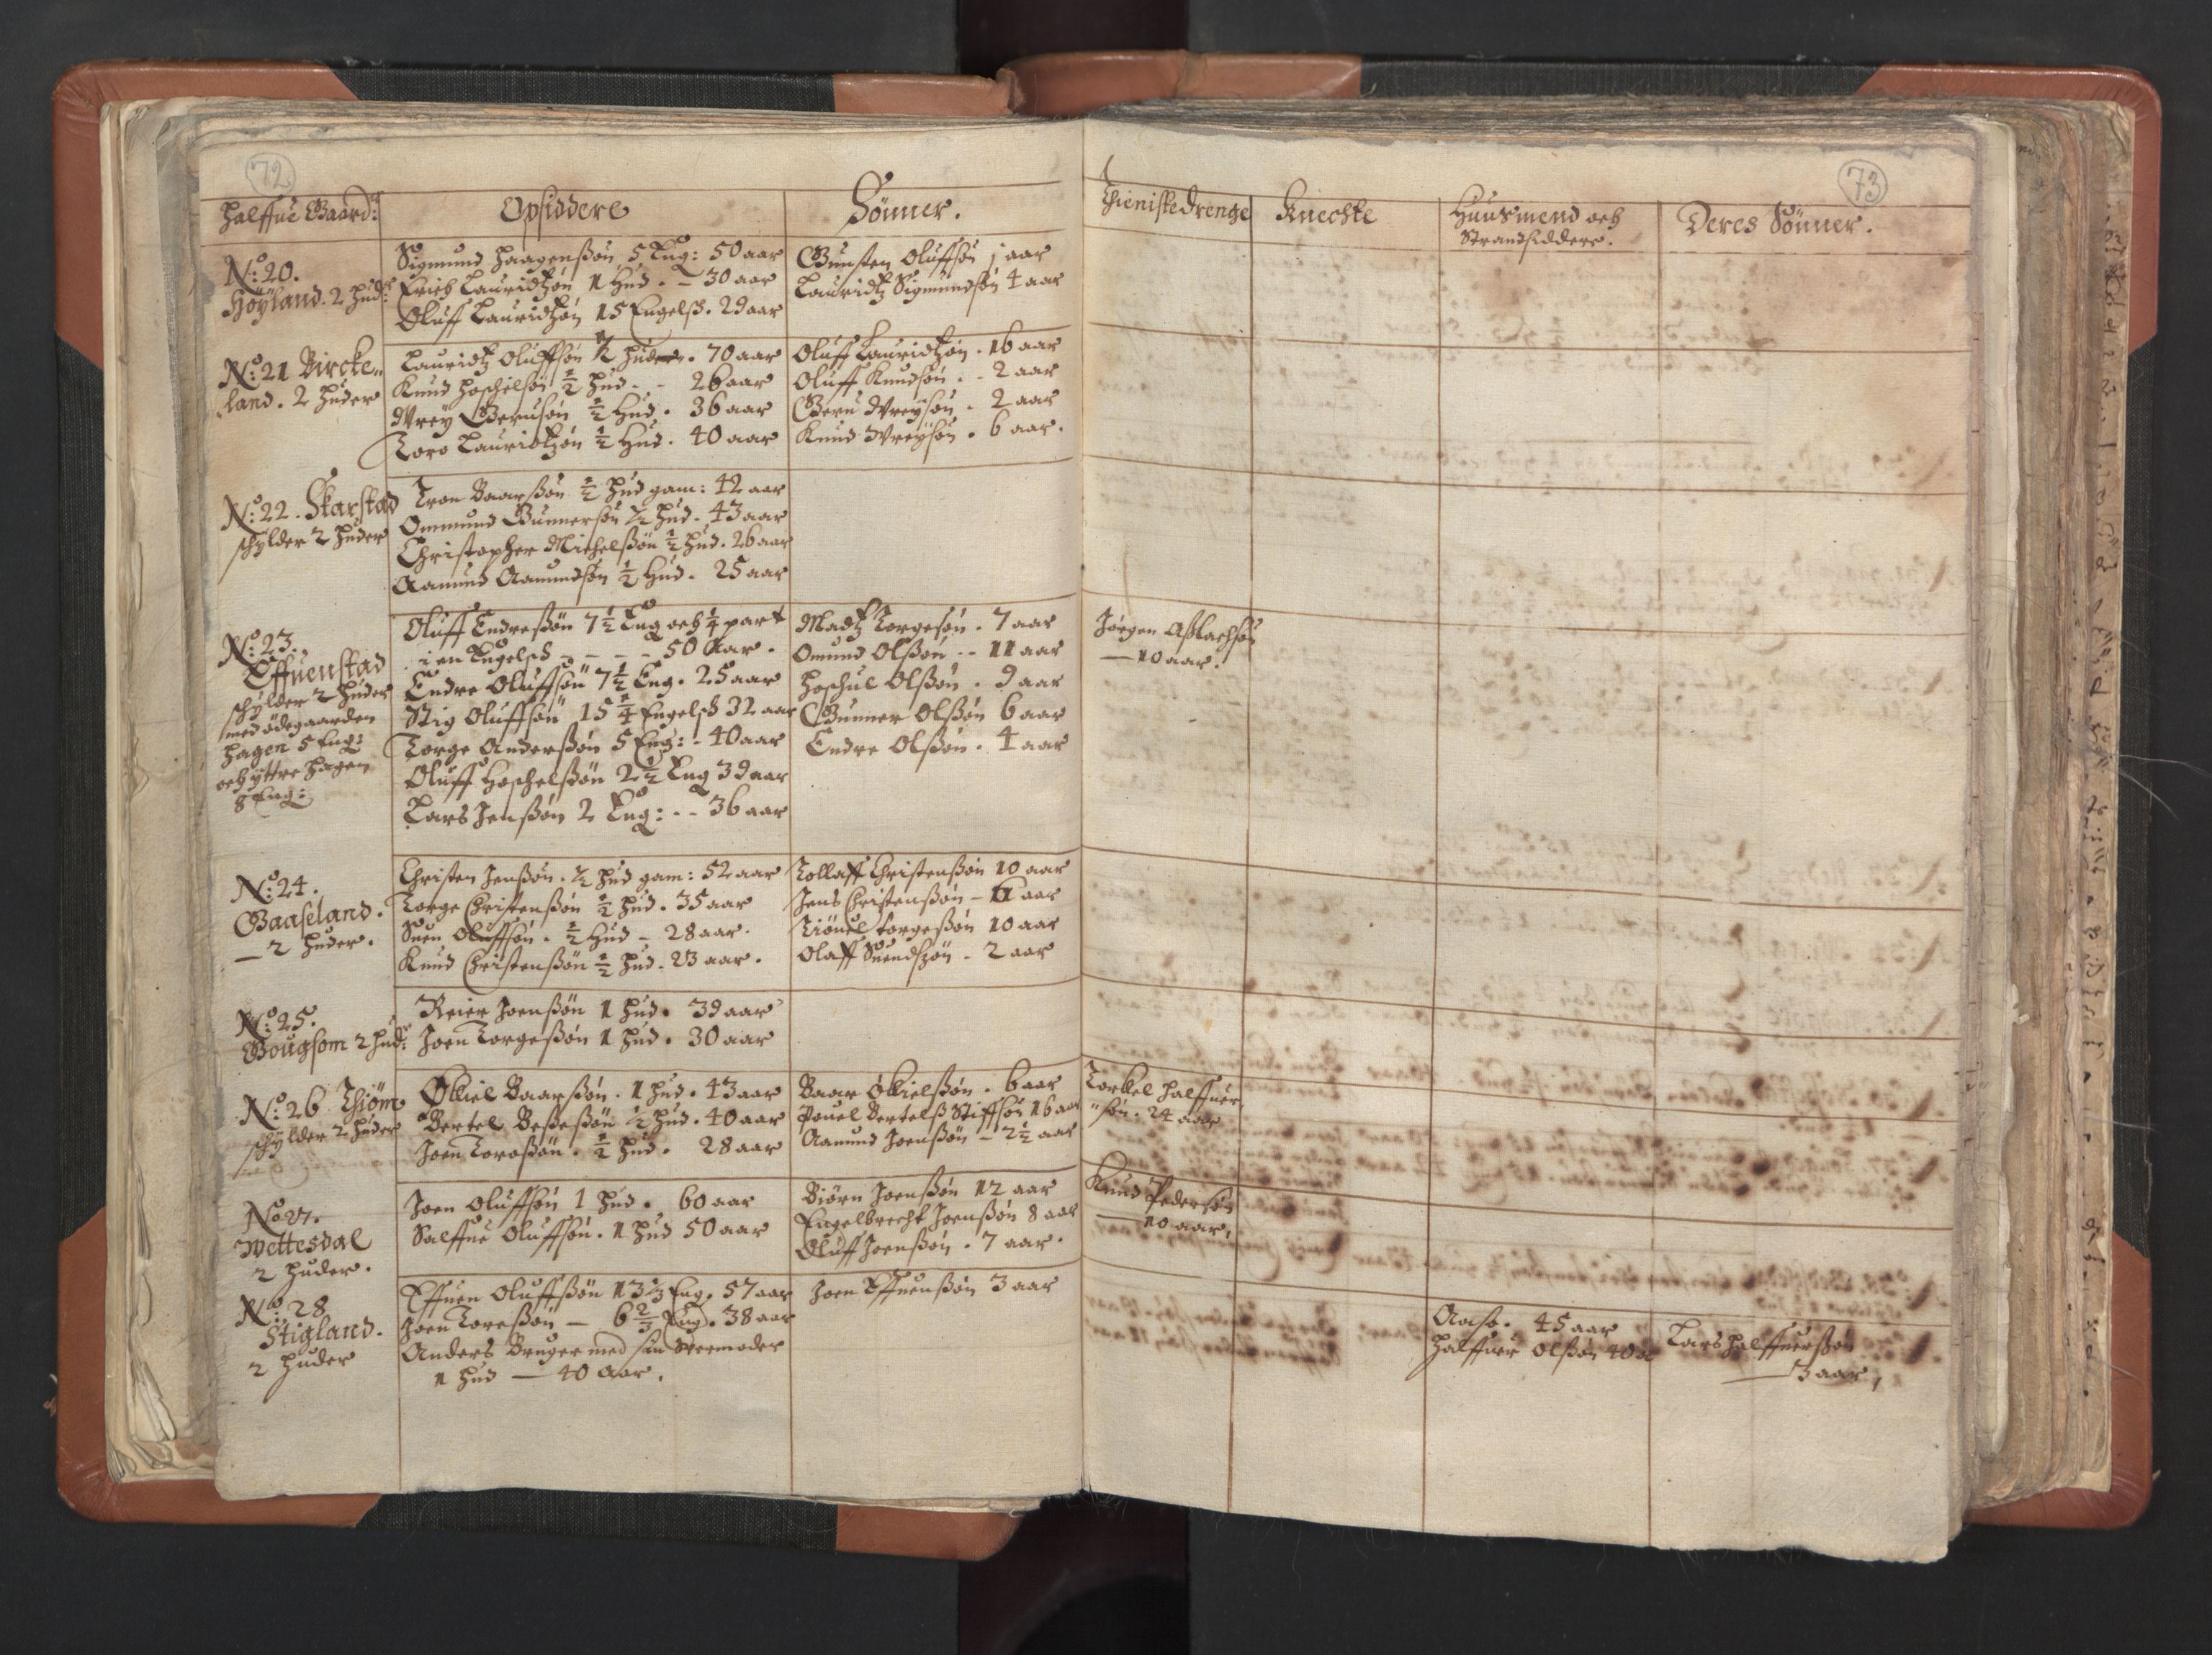 72
Halffue Gaard:
Opsiddere
Sønner.
No: 20.
Höyland. 2 hud:
Sigmund Haagenssøn 5 Eng: 50 aar
Erich Lauridtzøn 1 hud. - 30 aar
Oluff Lauridtzøn 15 Engelsk. 29 aar
Gunsten Oluffsøn j aar
Lauridtz Sigmundsøn 4 aar
No: 21 Bircke„
land. 2 huder
Lauridtz Oluffsøn ½ huder. 70 aar
Knud Hoschelsøn ½ hud - - 26 aar
Wrey Gerusøn ½ hud. 36 aar
Toro Lauridtzøn ½ hud. 40 aar
Oluff Lauridtzøn. 16 aar
Oluff Knudsøn. - 2 aar
Geru Wreysøn. 2 aar
Knud Wreysøn. 6 aar.
No: 22. Skarstad
schylder 2 huder
Tron Baarssøn ½ hud gam: 42 aar
Ommund Gunnersøn ½ hud. 43 aar
Christopher Michelssøn ½ hud. 26 aar
Aamund Aamundsøn ½ hud. 25 aar
No: 23.
Effuenstad
schylder 2 huder
med ödegaarden
Hagen 5 Eng:
och yttre Hagen
8 Eng:
Oluff Endressøn 7½ Eng och ¼ part
i en Engelsk - - - - 50 Aar.
Endre Oluffsøn 7½ Eng. 25 aar
Stig Oluffsøn 15¼ Engelsk 32 aar
Torge Anderssøn 5 Eng: - 40 aar
Oluff Hoschelssøn 2½ Eng 39 aar
Lars Jenssøn 2 Eng: - - 36 aar
Madtz Torgesøn. 7 aar
Omund Olssøn - - 11 aar
Hoschul Olssøn. 9 aar
Gunner Olssøn 6 aar
Endre Olssøn. 4 aar
No: 24.
Gaaseland.
2 huder.
Christen Jenssøn. ½ hud gam: 52 aar
Torge Christenssøn ½ hud. 35 aar
Suen Oluffsøn. ½ hud - 28 aar.
Knud Christenssøn ½ hud. 23 aar.
Tollaff Christenssøn 10 aar
Jens Christenssøn - 6 aar
Tiöuel Torgessøn 10 aar
Olaff Suendszøn - 2 aar
No: 25.
Gougsom 2 hud:
Reier Joenssøn 1 hud. 39 aar
Joen Torgessøn 1 hud. 30 aar
No: 26 Thiöm
schylder 2 huder
Ókkiel Baarssøn. 1 hud. 43 aar
Bertel Bessessøn ½ hud. 40 aar
Joen Torossøn. ½ hud. 28 aar
Baar Ókkielssøn. 6 aar
Pouel Bertelss Stiffsøn 16 aar
Aamund Joenssøn - 2½ aar
No 27.
Wettesdal
2 huder.
Joen Oluffsøn 1 hud. 60 aar
Salffue Oluffsøn. 1 hud 50 aar
Biörn Joenssøn 12 aar
Engelbrecht Joenssøn 8 aar
Oluff Joenssøn. 7 aar.
No: 28
Stigland.
2 huder
Effuen Oluffssøn 13⅓ Eng. 57 aar
Joen Toressøn — 6⅔ Eng. 38 aar
Anders Bruger med sin Weermoder
1 hud — 40 Aar.
Joen Effuenssøn 3 aar
73
Thienistedrenge
Knechte
Huusmend och
Strandsiddere.
Deres Sönner.
Jörgen Asslachsøn
— 10 aar.
Torkel Halffuer
„søn. 24 aar
Knud Pedersøn
— 10 aar.
Aaso. 45 aar
Halffuer Olssøn 40 a
Lars Halffuerssøn
— 3 aar,